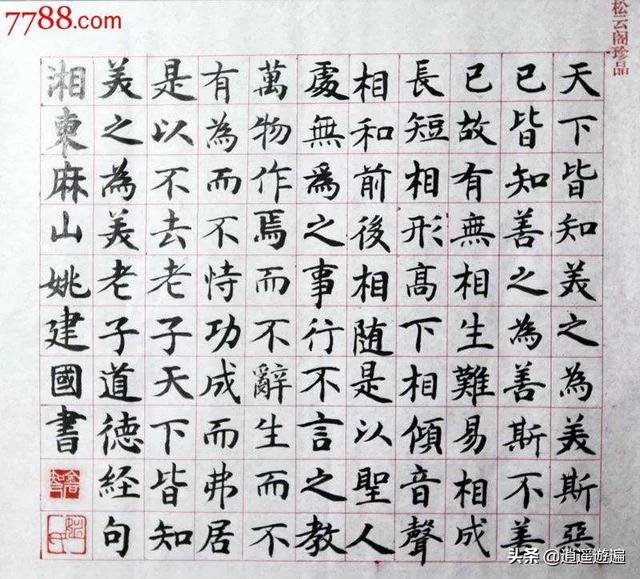 7788.com
松云阁珍品
天下皆知美之為美斯惡
已皆知善之為善斯不善
已故有無相生難易相成
長短相形高下相傾音聲
相和前後相随是以聖人
處無爲之事行不言之教
萬物作焉而不辭生而不
有為而不恃功成而弗居
是以不去老子天下皆知
美之為美老子道德経句
湘東麻山姚建國書
头条 @逍遥遊遍